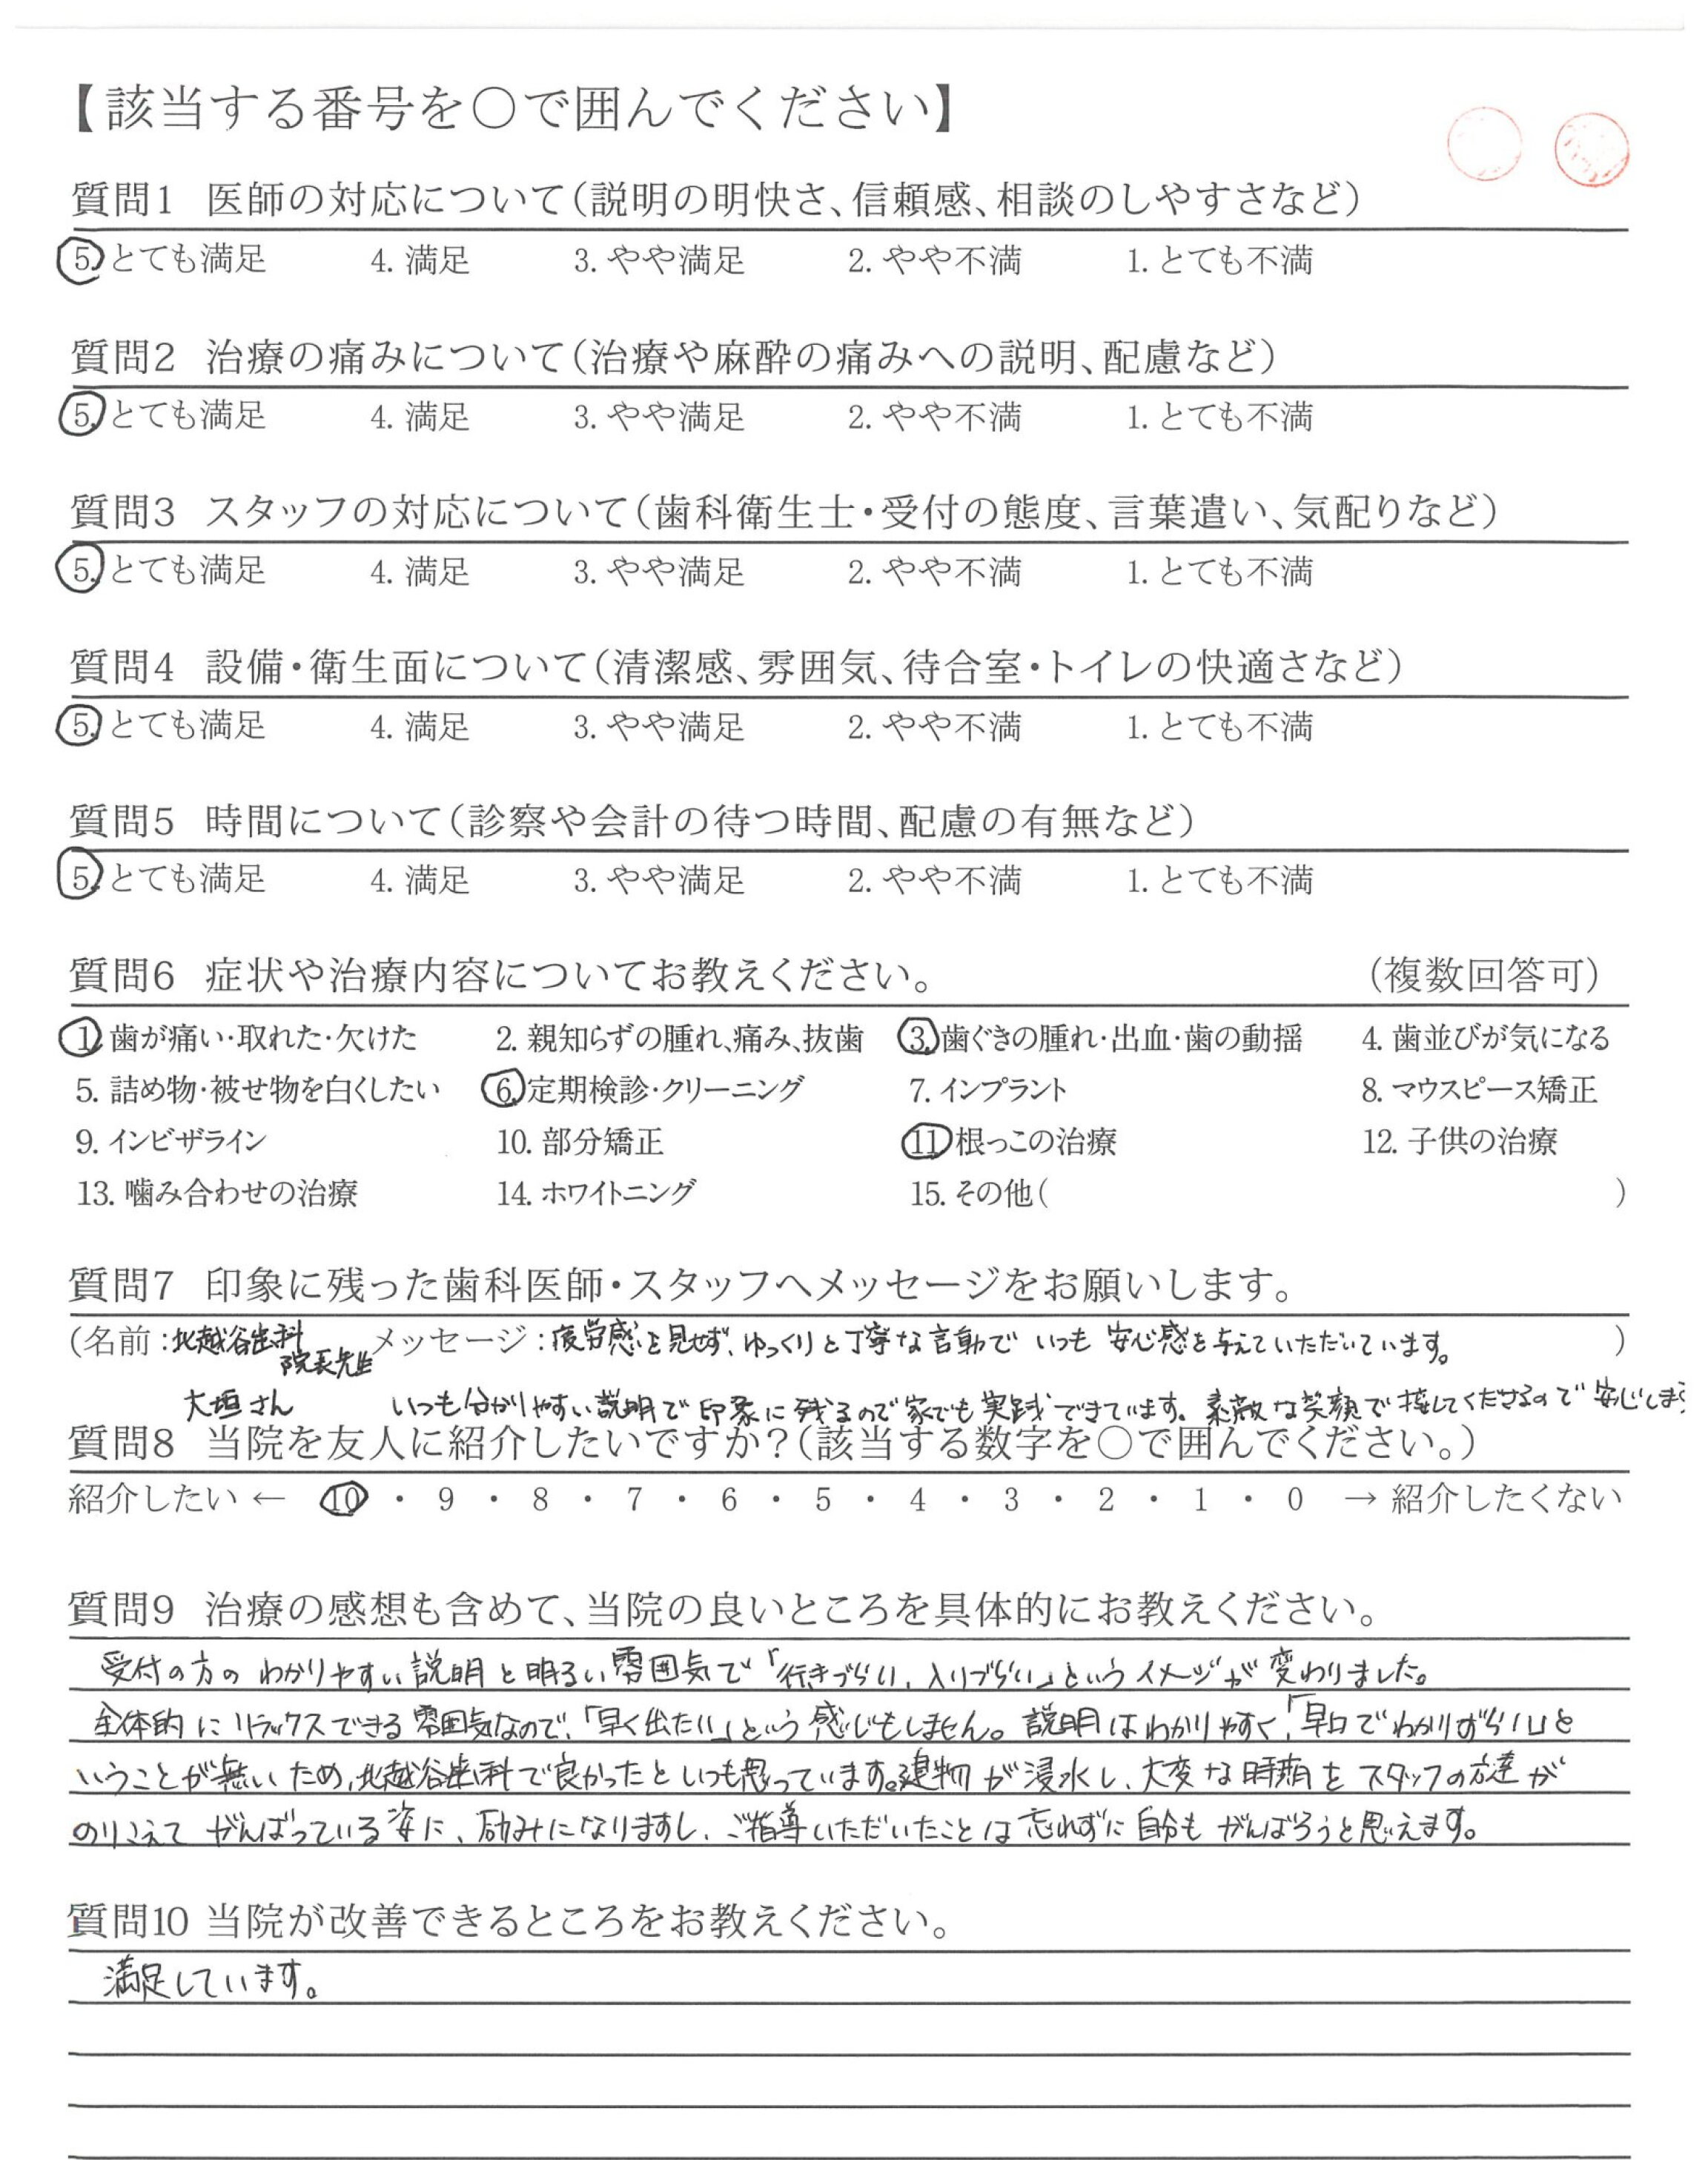 【該当する番号を○で囲んでください】
質問1 医師の対応について(説明の明快さ、信頼感、相談のしやすさなど)
5. とても満足 4. 満足 3. やや満足 2. やや不満 1. とても不満
質問2 治療の痛みについて(治療や麻酔の痛みへの説明、配慮など)
5. とても満足 4. 満足 3. やや満足 2. やや不満 1. とても不満
質問3 スタッフの対応について(歯科衛生士・受付の態度、言葉遣い、気配りなど)
5. とても満足 4. 満足 3. やや満足 2. やや不満 1. とても不満
質問4 設備・衛生面について(清潔感、雰囲気、待合室・トイレの快適さなど)
5. とても満足 4. 満足 3. やや満足 2. やや不満 1. とても不満
質問5 時間について(診察や会計の待つ時間、配慮の有無など)
5. とても満足 4. 満足 3. やや満足 2. やや不満 1. とても不満
質問6 症状や治療内容についてお教えください。 (複数回答可)
1. 歯が痛い・取れた・欠けた 2. 親知らずの腫れ、痛み、抜歯 3. 歯ぐきの腫れ・出血・歯の動揺 4. 歯並びが気になる
5. 詰め物・被せ物を白くしたい 6. 定期検診・クリーニング 7. インプラント 8. マウスピース矯正
9. インビザライン 10. 部分矯正 11. 根っこの治療 12. 子供の治療
13. 噛み合わせの治療 14. ホワイトニング 15. その他( )
質問7 印象に残った歯科医師・スタッフへメッセージをお願いします。
(名前:北越谷歯科 院長先生 メッセージ:疲労感を見せず、ゆっくりと丁寧な言動で いつも 安心感を与えていただいています。 )
大垣さん いつも分かりやすい説明で印象に残るので家でも実践できています。素敵な笑顔で接してくださるので安心しま
質問8 当院を友人に紹介したいですか?(該当する数字を○で囲んでください。)
紹介したい ← 10 ・ 9 ・ 8 ・ 7 ・ 6 ・ 5 ・ 4 ・ 3 ・ 2 ・ 1 ・ 0 → 紹介したくない
質問9 治療の感想も含めて、当院の良いところを具体的にお教えください。
受付の方の わかりやすい説明と明るい雰囲気で「行きづらい、入りづらい」というイメージが変わりました。
全体的にリラックスできる雰囲気なので、「早く出たい」という感じもしません。説明はわかりやすく、「早口でわかりずらい」と
いうことが無いため、北越谷歯科で良かったといつも思っています。建物が浸水し、大変な時期をスタッフの方達が
のりこえてがんばっている姿に、励みになりますし、ご指導いただいたことは忘れずに自分もがんばろうと思えます。
質問10 当院が改善できるところをお教えください。
満足しています。